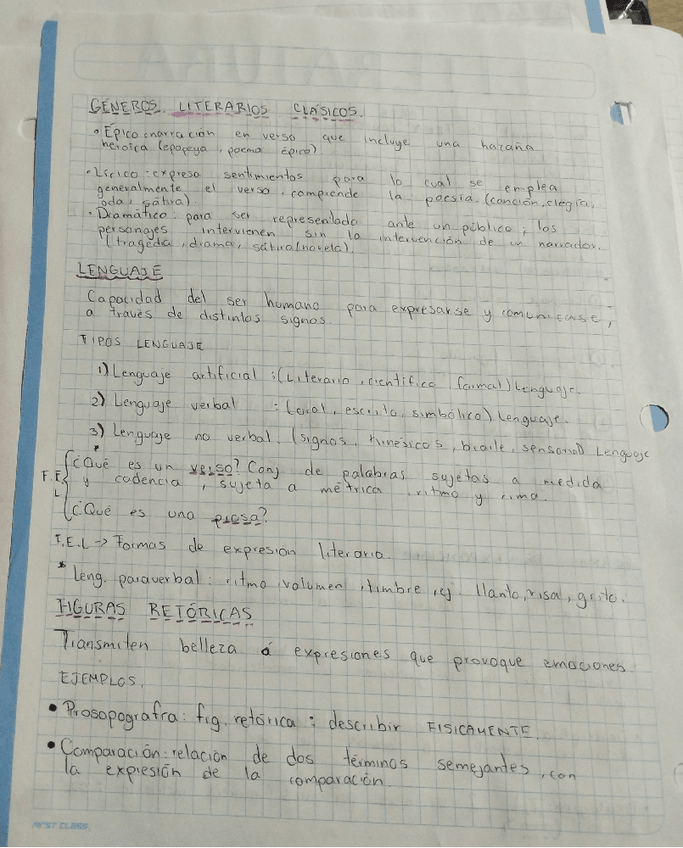 GÉNEROS LITERARIOS CLÁSICOS.
• Épico: narración en verso que incluye una hazaña
heroica (epopeya, poema épico).
• Lírico: expresa sentimientos para lo cual se emplea
generalmente el verso, comprende la poesía (canción, elegía,
oda, sátira).
• Dramático: para ser representado ante un público, los
personajes intervienen sin la intervención de un narrador.
(tragedia, drama, sátira/novela).
LENGUAJE
Capacidad del ser humano para expresarse y comunicarse,
a través de distintos signos
TIPOS LENGUAJE
1) Lenguaje artificial: (Literario, científico, formal) Lenguaje.
2) Lenguaje verbal : (oral, escrito, simbólico) Lenguaje.
3) Lenguaje no verbal. (signos, kinésicos, braile, sensorial) Lenguaje
¿Qué es un verso? Conj de palabras sujetas a medida
F.E. y cadencia, sujeta a métrica, ritmo y rima.
L ¿Qué es una prosa?
F.E.L -> Formas de expresión literaria.
* Leng. paraverbal: ritmo, volumen, timbre, ej llanto, risa, grito.
FIGURAS RETÓRICAS
Transmiten belleza ó expresiones que provoque emociones
EJEMPLOS.
• Prosopografía: fig. retórica: describir FISICAMENTE.
• Comparación: relación de dos términos semejantes, con
la expresión de la comparación.